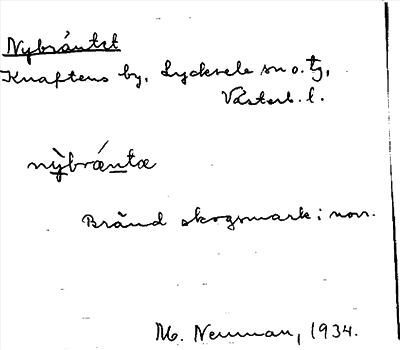 Nybräntet
Knaftens by, Lycksele sn o. tg,
Västerb. l.
nỳbrǽntæ
Bränd skogsmark i norr.
M. Neuman, 1934.